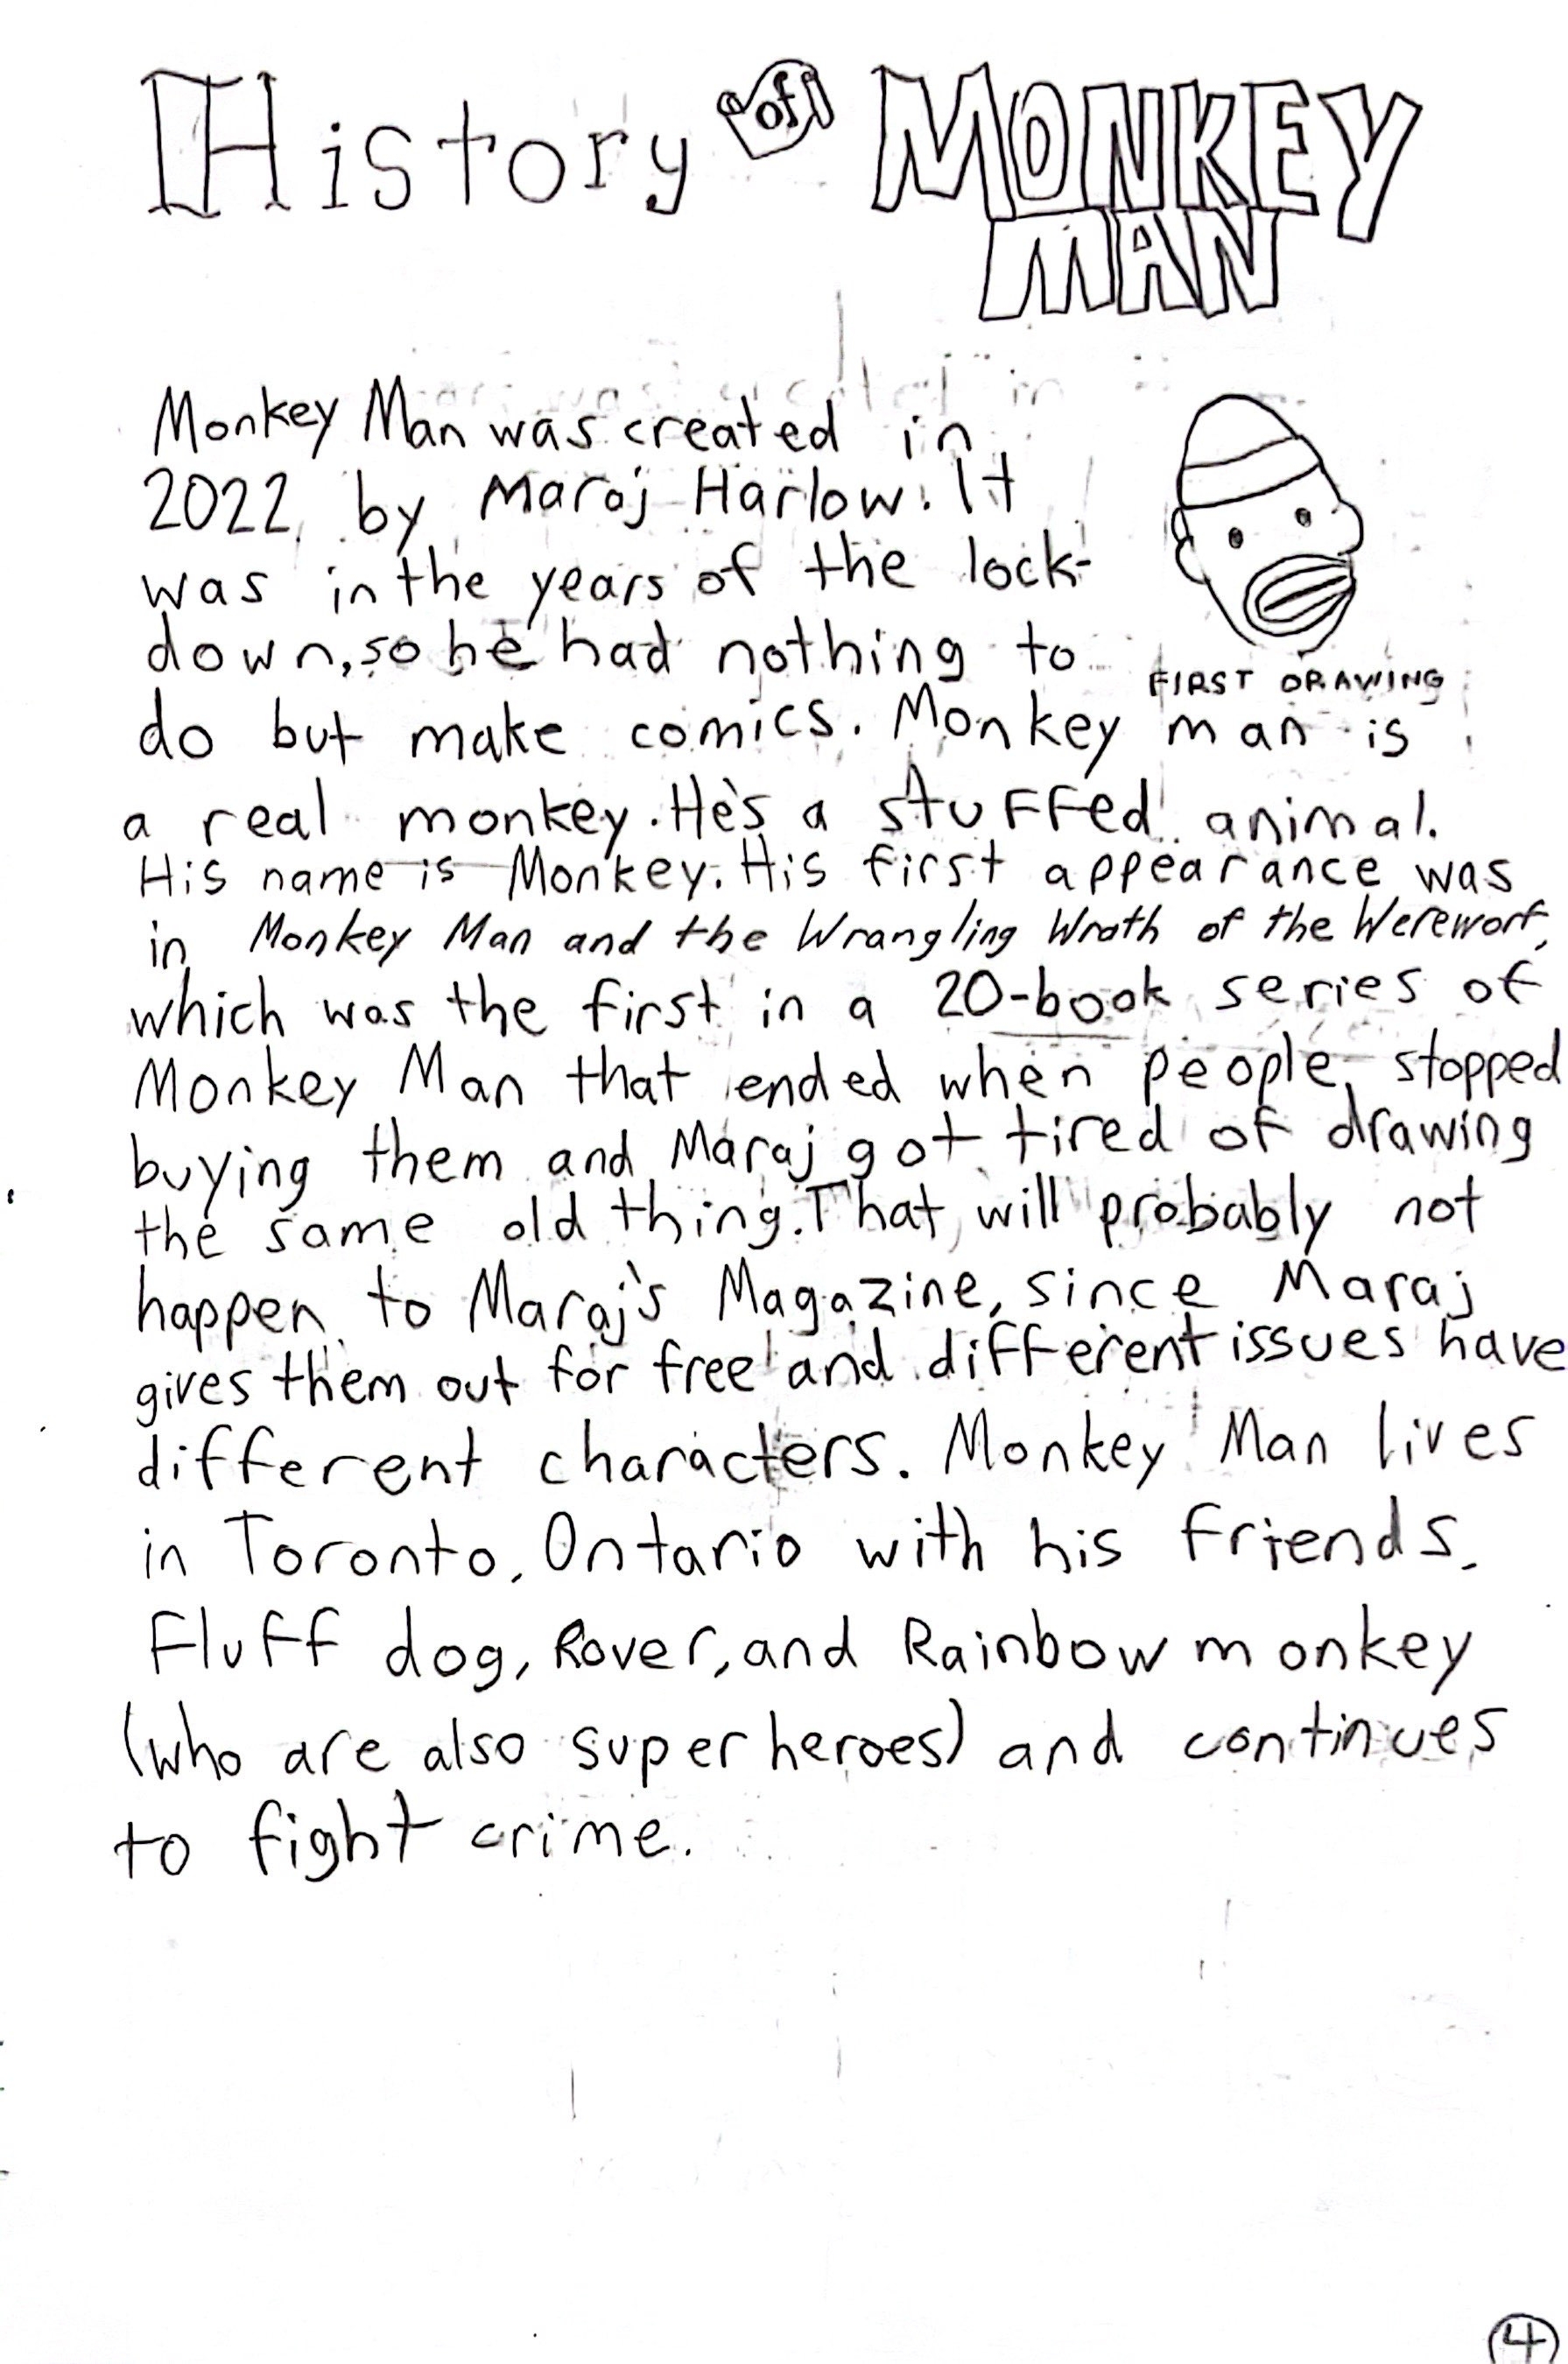 History of MONKEY
MAN
Monkey Man was created in
2022 by Maraj Harlow. It
was in the years of the lock-
down, so he had nothing to
FIRST DRAWING
do but make comics. Monkey man is
a real monkey. He's a stuffed animal.
His name is Monkey. His first appearance was
in Monkey Man and the Wrangling Wrath of the Wereworf,
which was the first in a 20-book series of
Monkey Man that ended when people stopped
buying them and Maraj got tired of drawing
the same old thing. That will probably not
happen to Maraj's Magazine, since Maraj
gives them out for free and different issues have
different characters. Monkey Man lives
in Toronto, Ontario with his friends.
Fluff dog, Rover, and Rainbow monkey
(who are also superheroes) and continues
to fight crime.
4